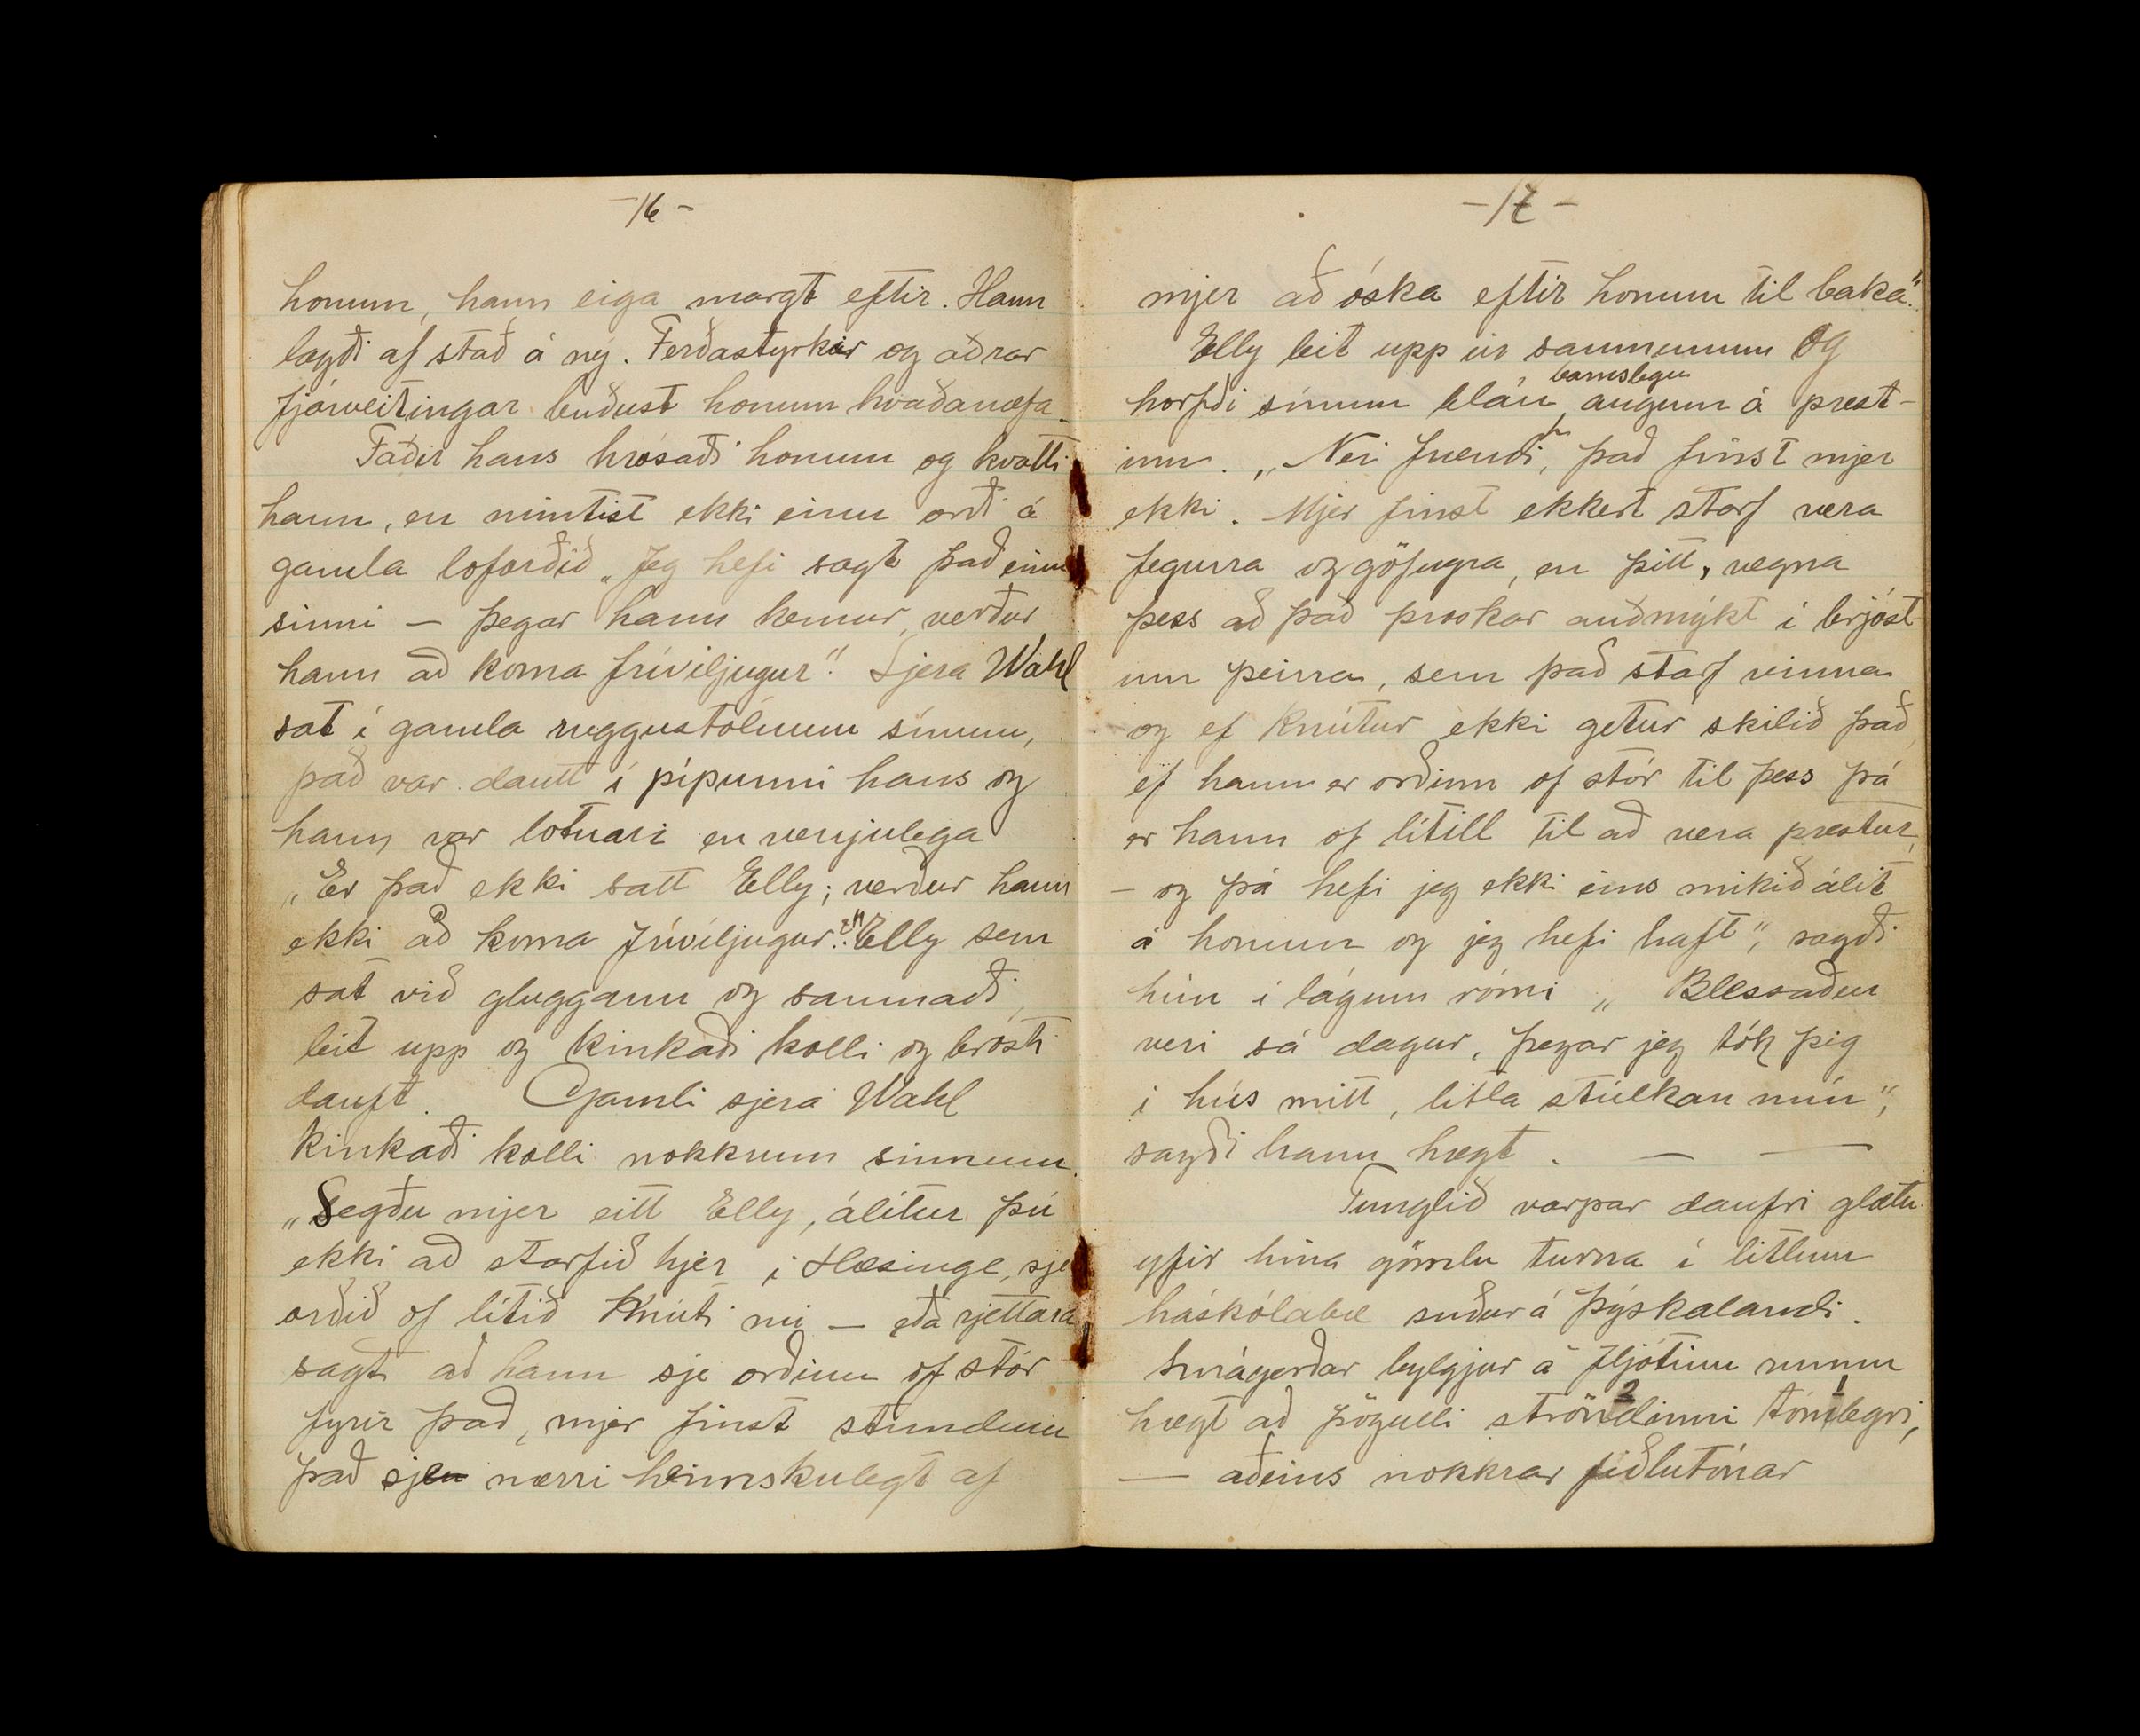 -16-
honum, hann eiga margt eftir. Hann
lagði af stað á ný. Ferðastyrkir og aðrar
fjárveitingar buðust honum hvaðanæfa_
Faðir hans hrósaði honum og kvatti
hann, en mintist ekki einu orði á
gamla loforðið „Jeg hefi sagt það einu
sinni — þegar hann kemur, verður
hann að koma fríviljugur". Sjera Wahl
sat í gamla ruggustólnum sínum,
það var dautt í pípunni hans og
hann var lotnari en venjulega
„Er það ekki satt Elly; verður hann
ekki að koma fríviljugur?" Elly sem
sat við gluggann og saumaði,
leit upp og kinkaði kolli og brosti
dauft. Gamli sjera Wahl
kinkaði kolli nokkrum sinnum.
„Segðu mjer eitt Elly, álítur þú
ekki að starfið hjer í Hæsinge, sje
orðið of lítið Knúti nú — eða rjettara
sagt að hann sje orðinn of stór
fyrir það, mjer finst stundum
það sje nærri heimskulegt af
-17-
mjer að óska eftir honum til baka".
Elly leit upp úr saumunum og
barnslegu
horfði sínum bláu, augum á prest-
inn. „Nei frændi, það finst mjer
ekki. Mjer finst ekkert starf vera
fegurra og göfugra, en þitt, vegna
þess að það þroskar auðmýkt í brjóst
um þeirra, sem það starf vinna
og ef Knútur ekki getur skilið það,
ef hann er orðinn of stór til þess þá
er hann of lítill til að vera prestur,
— og þá hefi jeg ekki eins mikið álit
á honum og jeg hefi haft", sagði
hún í lágum rómi „Blessaður
veri sá dagur, þegar jeg tók þig
í hús mitt, litla stúlkan mín",
sagði hann hægt. — —
Tunglið varpar daufri glætu
yfir hina gömlu turna í litlum
háskólabæ suður á Þýskalandi.
Smágerðar bylgjur á fljótinu runnu
hægt að þögulli ströndinni 2 tómlegri, 1
— aðeins nokkrar fiðlutónar